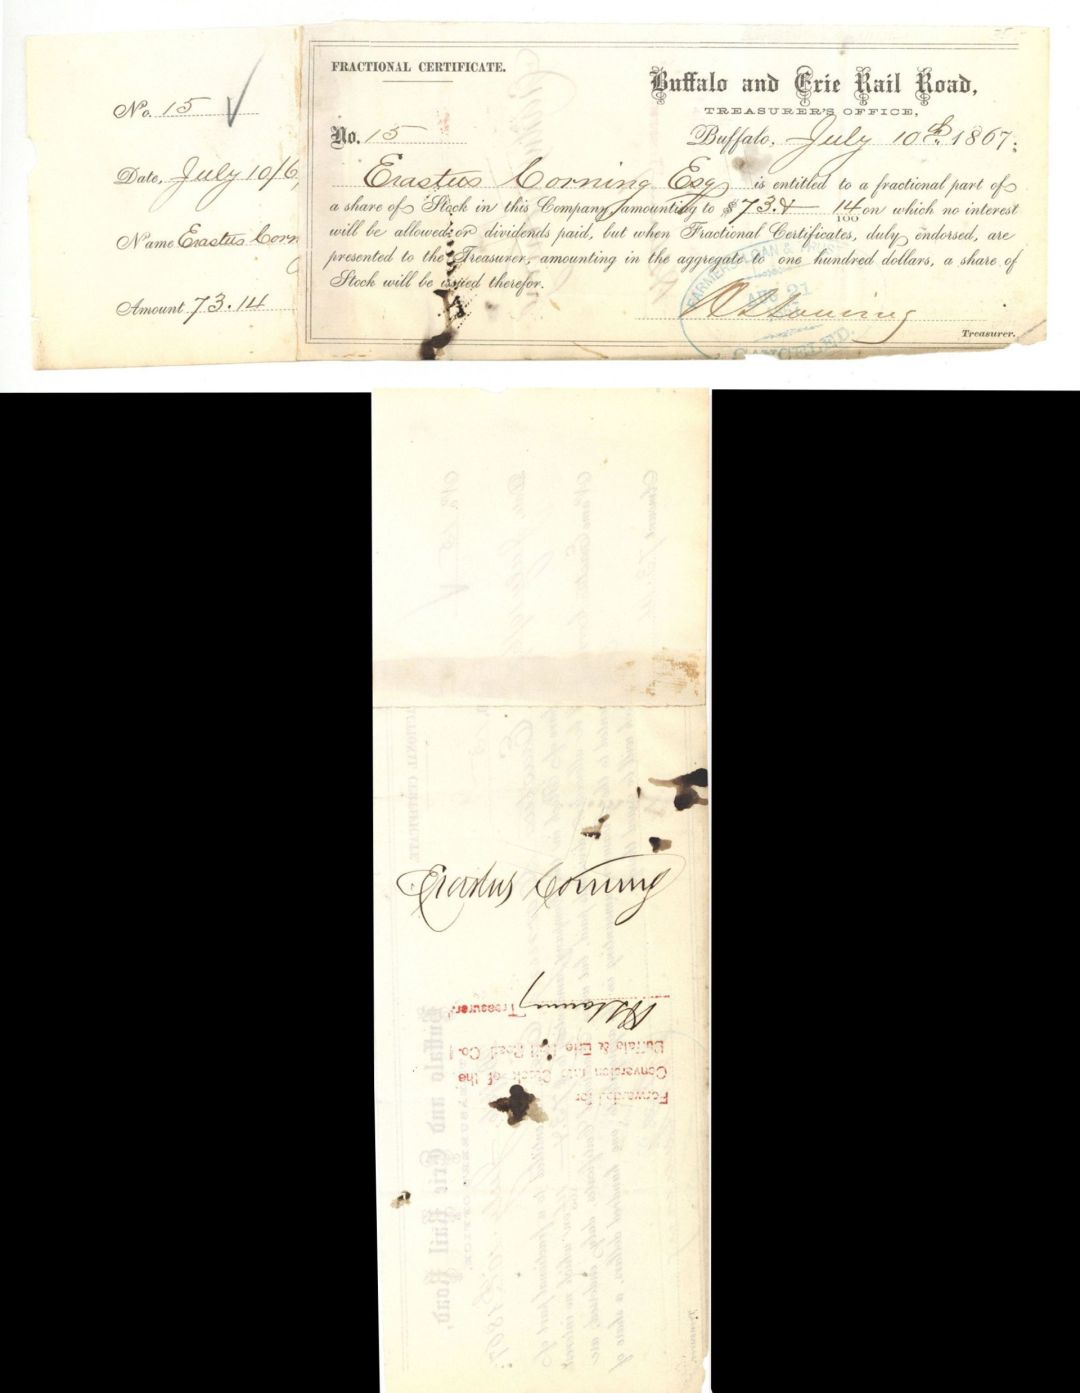 No. 15
Date, July 10/6
Name Erastus Corn
Amount 73.14
FRACTIONAL CERTIFICATE.
Buffalo and Erie Rail Road,
TREASURER'S OFFICE,
No. 15
Buffalo, July 10th 1867.
Erastus Corning Esq is entitled to a fractional part of
a share of Stock in this Company, amounting to $ 73.& 14/100 on which no interest
will be allowed or dividends paid, but when Fractional Certificates, duly endorsed, are
presented to the Treasurer, amounting in the aggregate to one hundred dollars, a share of
Stock will be issued therefor.
Treasurer.
FARMERS LOAN & TRUST
AUG 21
CANCELLED
Erastus Corning
Forwarded for
Conversion into Stock of the
Buffalo & Erie Rail Road Co.
Treasurer